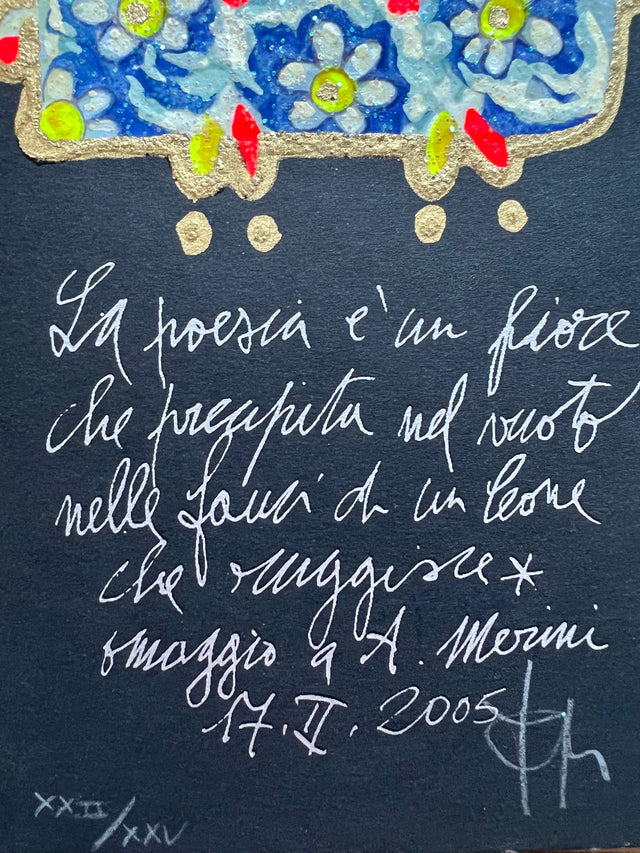 La poesia è un fiore
che precipita nel vuoto
nelle fauci di un leone
che ruggisce*
omaggio a A. Merini
17.II.2005
XXII/XXV